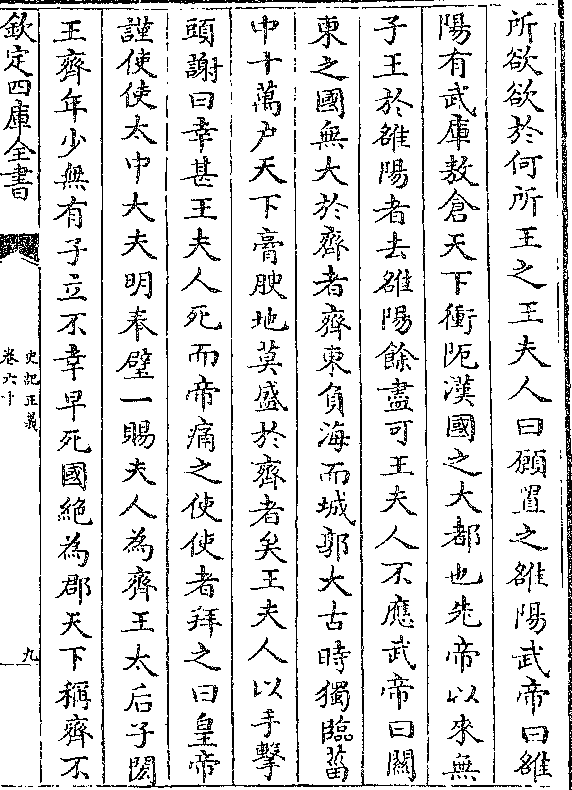 所欲欲於何所王之王夫人曰願置之雒陽武帝曰雒
陽有武庫敖倉天下衝阨漢國之大都也先帝以來無
子王於雒陽者去雒陽餘盡可王夫人不應武帝曰關
東之國無大於齊者齊東負海而城郭大古時獨臨菑
中十萬户天下膏腴地莫盛於齊者矣王夫人以手擊
頭謝曰幸甚王夫人死而帝痛之使使者拜之曰皇帝
謹使使太中大夫明奉璧一賜夫人為齊王太后子閎
王齊年少無有子立不幸早死國絶為郡天下稱齊不
欽定四庫全書
史記正義
卷六十
九